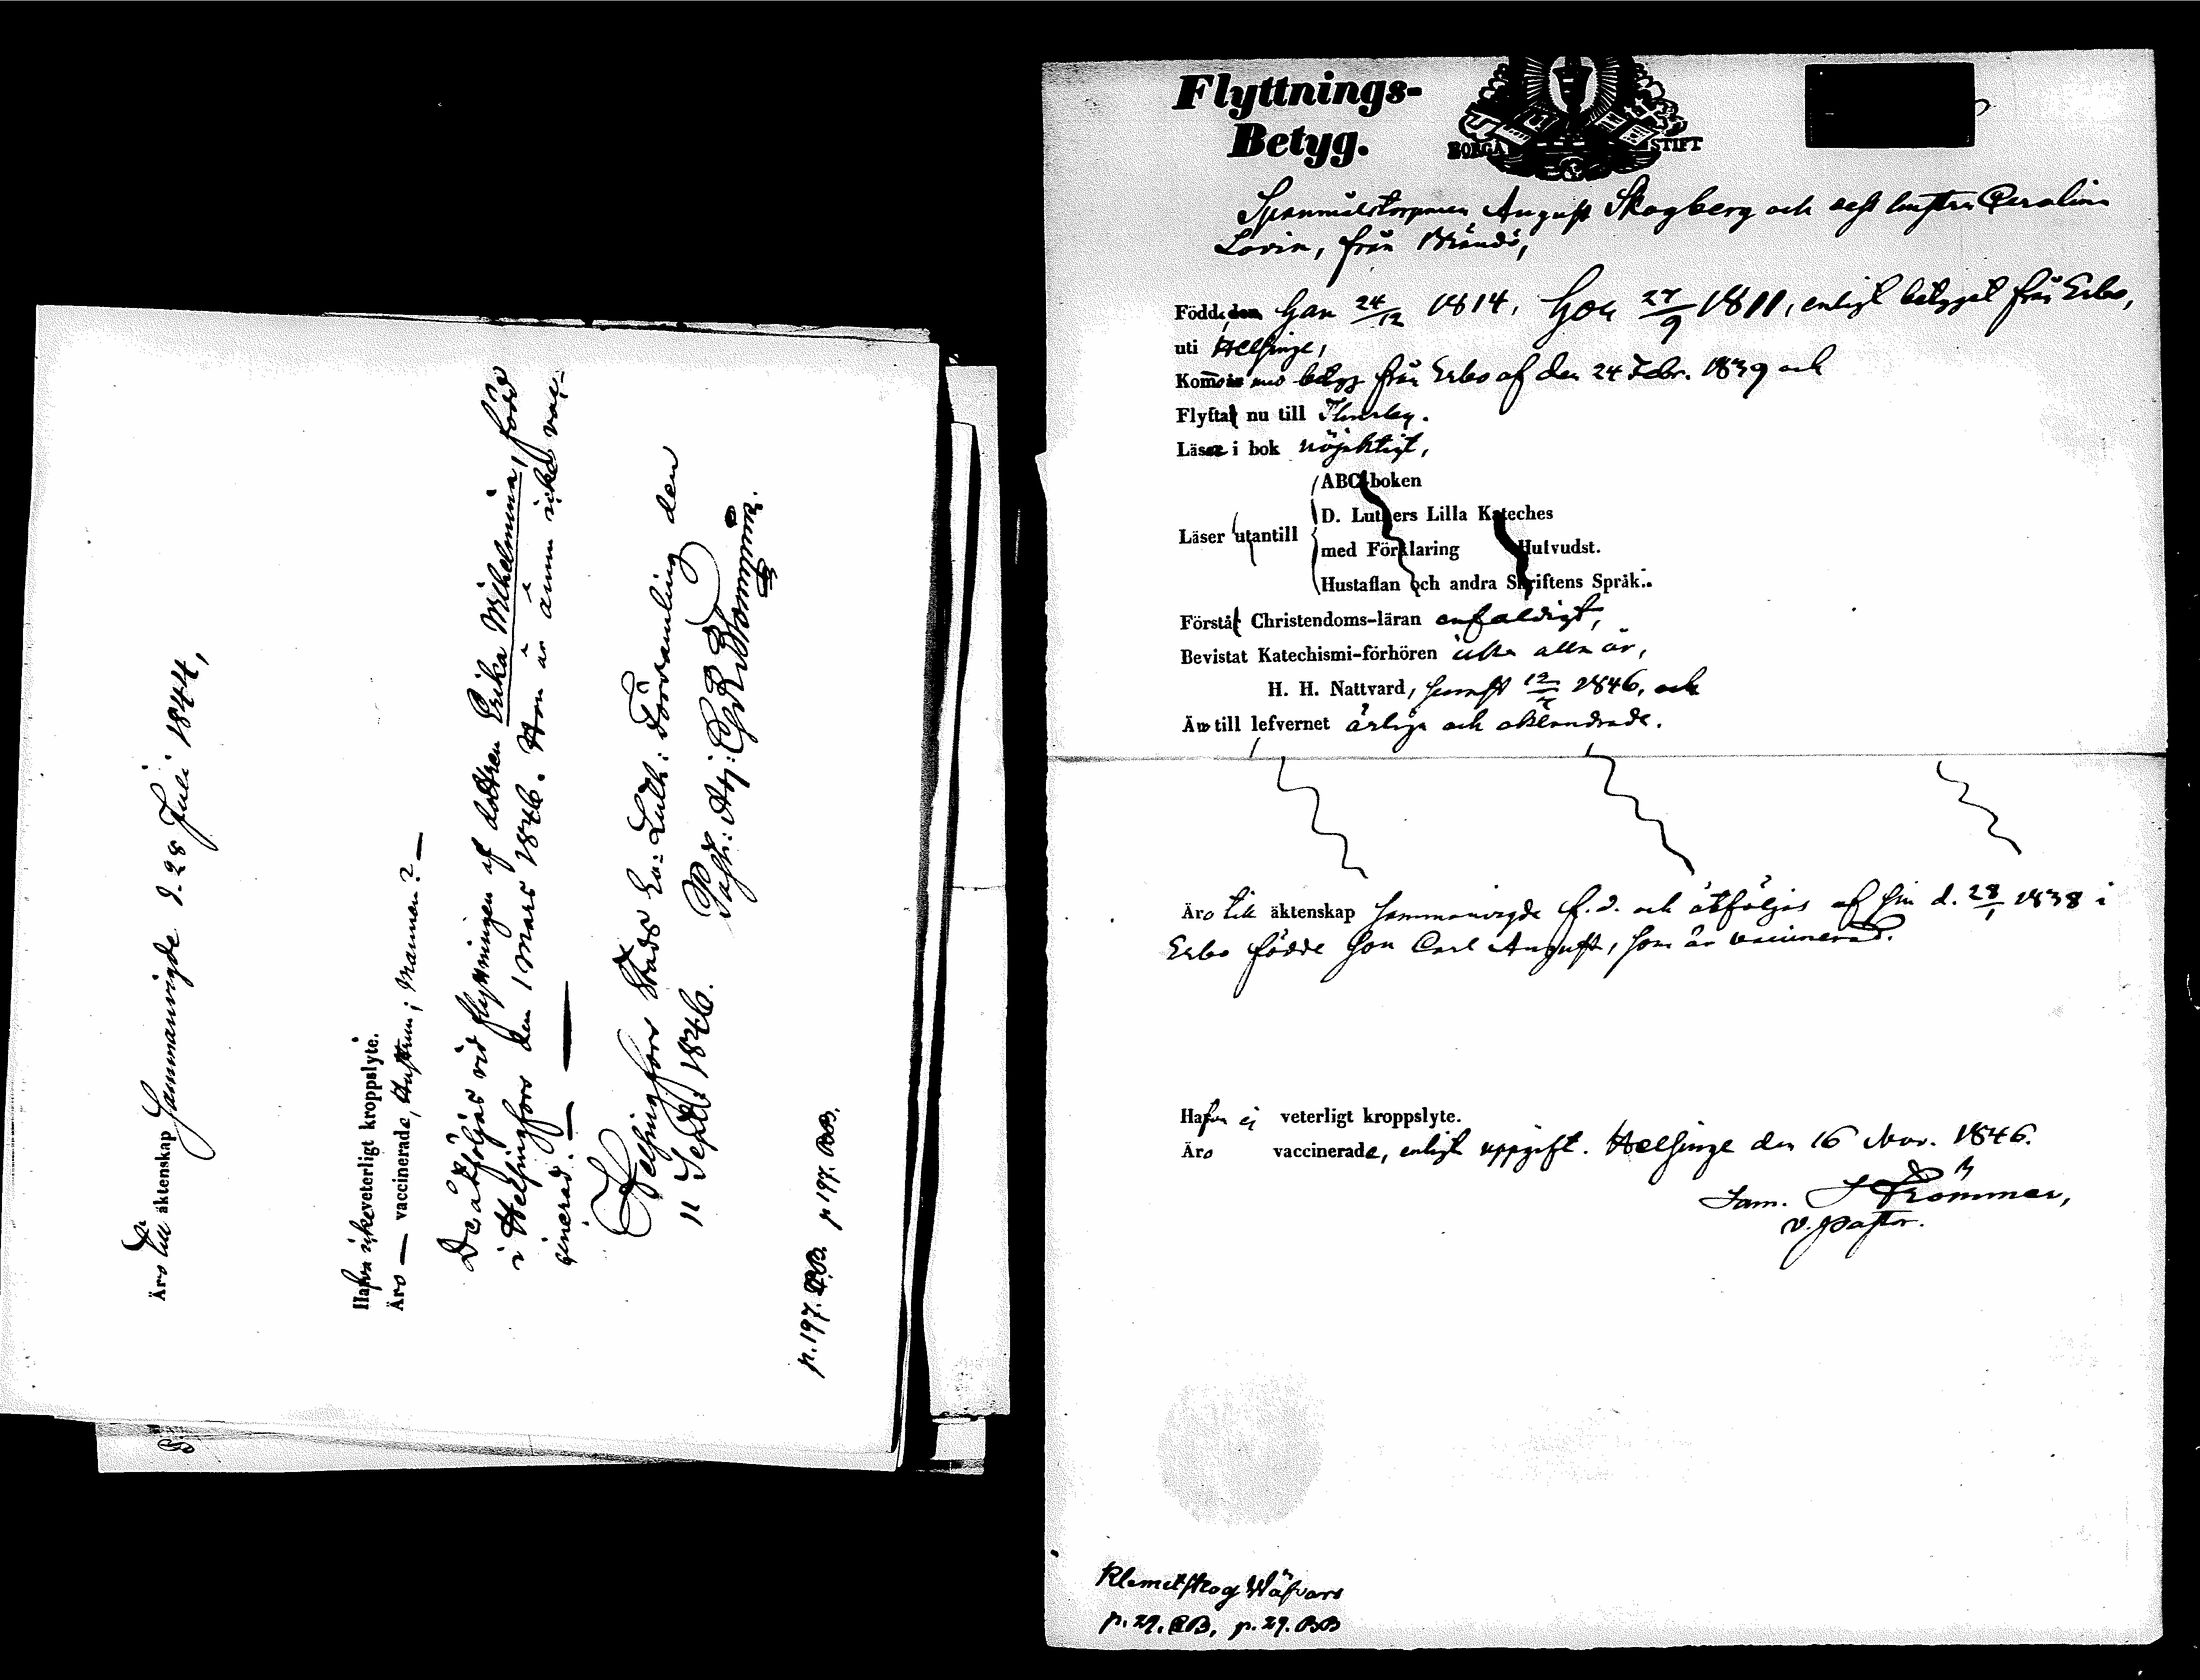 Äro till äktenskap Sammanvigde d. 28 Juli 1844,
Hafva icke veterligt kroppslyte.
Äro — vaccinerade, Hustrun; Mannen? —
De åtföljas vid flyttningen af dottren Erika Wilhelmina, född
i Helsingfors den 1 Mars 1846. Hon är ännu icke vac-
cinerad. — —
Helsingfors Stads Ev: Luth: Församling den
11 Sept. 1846.
Past: Adj:
p. 197. BB. p 197. BB.
Flyttnings-
Betyg.
BORGÅ STIFT
August Skogberg och dess hustru Carolina
Lovisa, från Brändö,
Födde, den han 24/12 1814, hon 27/9 1811, enligt betyget från Esbo,
uti Helsinge,
Kommo med betyg från Esbo af den 24 Febr. 1839 och
Flytta nu till Thusby.
Läsa i bok nöjaktigt,
ABC-boken
D. Luthers Lilla Kateches
Läser utantill
med Förklaring Hufvudst.
Hustaflan och andra Skriftens Språk.
Förstå Christendoms-läran enfaldigt,
Bevistat Katechismi-förhören icke alla år,
H. H. Nattvard, senast 1846, och
Äro till lefvernet ärliga och oklandrade.
Äro till äktenskap sammanvigde f. d. och åtföljas af sin d. 28/1 1838 i
Esbo födde son Carl August, som är vaccinerad.
Hafva ej veterligt kroppslyte.
Äro vaccinerade, enligt uppgift. Helsinge den 16 Nov. 1846.
Sam. Strömmer,
v. pastor.
Klemetskog Wäfvars
p. 29. RB, p. 29. BB